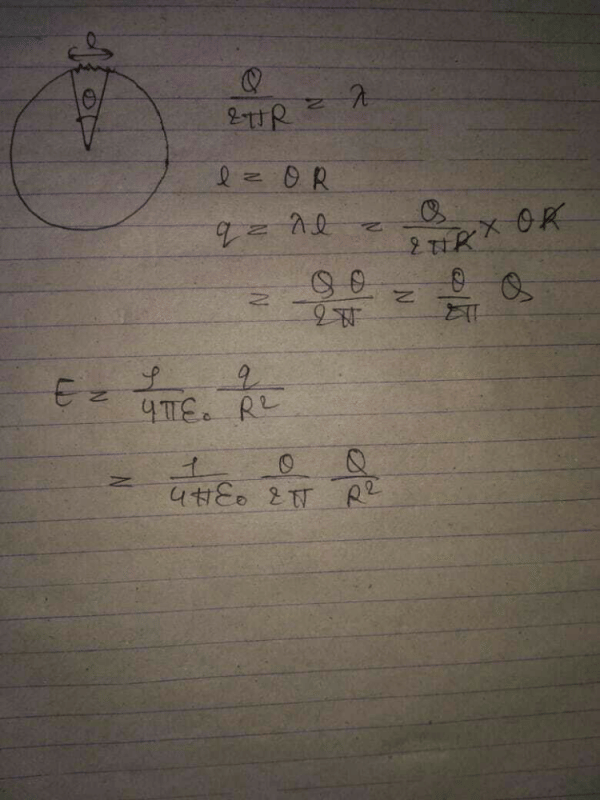 l
θ
Q/2πR = λ
l = θR
q = λl = Q/2πR × θR
= Qθ/2π = θ/2π Q
E = 1/4πε₀ q/R²
= 1/4πε₀ θ/2π Q/R²